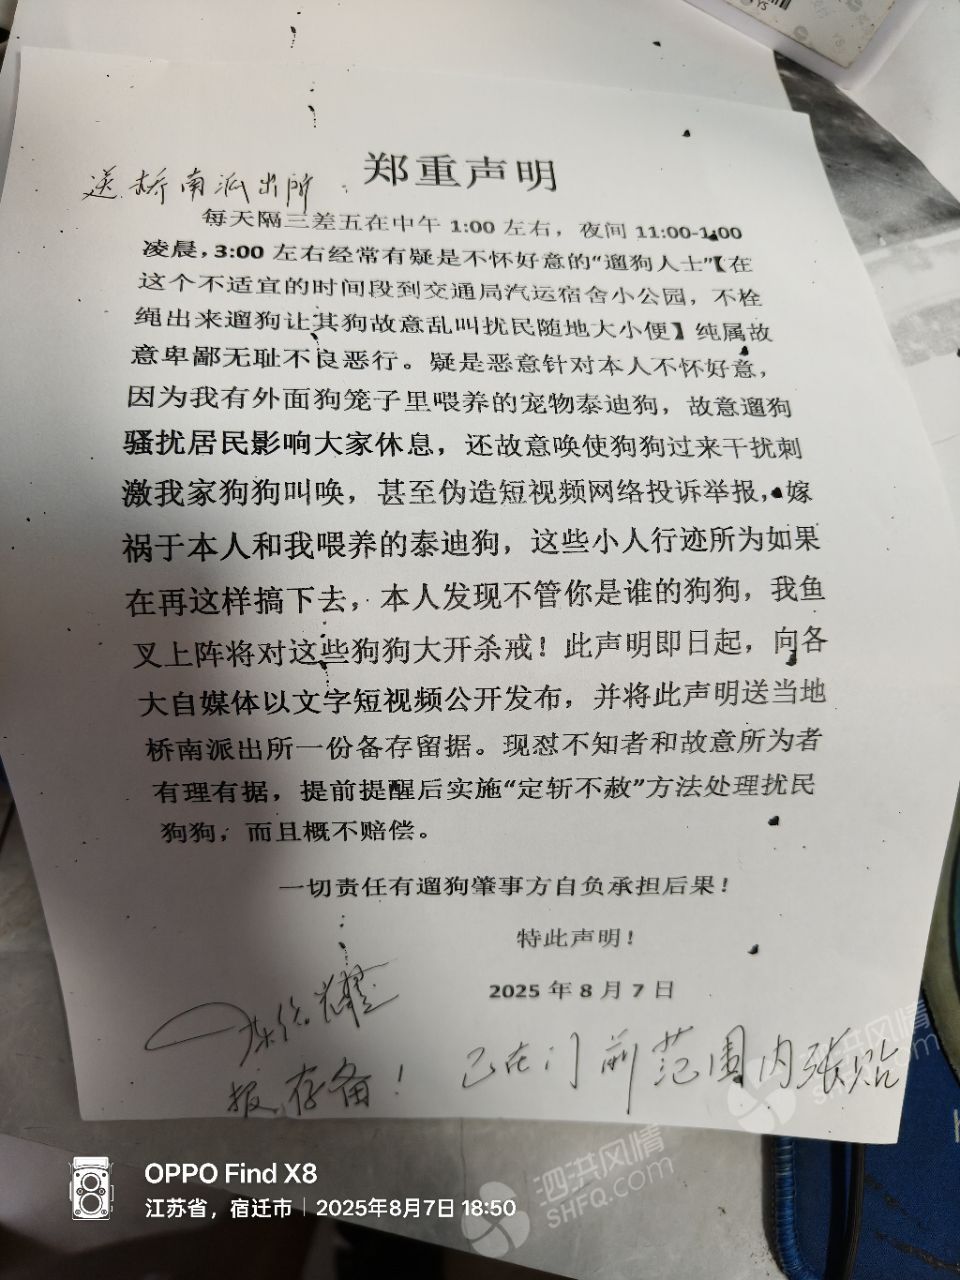 郑重声明
送桥南派出所
每天隔三差五在中午 1:00 左右，夜间 11:00-1:00
凌晨，3:00 左右经常有疑是不怀好意的“遛狗人士”【在
这个不适宜的时间段到交通局汽运宿舍小公园，不栓
绳出来遛狗让其狗故意乱叫扰民随地大小便】纯属故
意卑鄙无耻不良恶行。疑是恶意针对本人不怀好意，
因为我有外面狗笼子里喂养的宠物泰迪狗，故意遛狗
骚扰居民影响大家休息，还故意唤使狗狗过来干扰刺
激我家狗狗叫唤，甚至伪造短视频网络投诉举报，嫁
祸于本人和我喂养的泰迪狗，这些小人行迹所为如果
在再这样搞下去，本人发现不管你是谁的狗狗，我鱼
叉上阵将对这些狗狗大开杀戒！此声明即日起，向各
大自媒体以文字短视频公开发布，并将此声明送当地
桥南派出所一份备存留据。现怼不知者和故意所为者
有理有据，提前提醒后实施“定斩不赦”方法处理扰民
狗狗，而且概不赔偿。
一切责任有遛狗肇事方自负承担后果！
特此声明！
2025 年 8 月 7 日
报存备！
已在门前范围内张贴
泗洪风情
SHFQ.COM
泗洪风情
SHFQ.COM
OPPO Find X8
江苏省，宿迁市 | 2025年8月7日 18:50